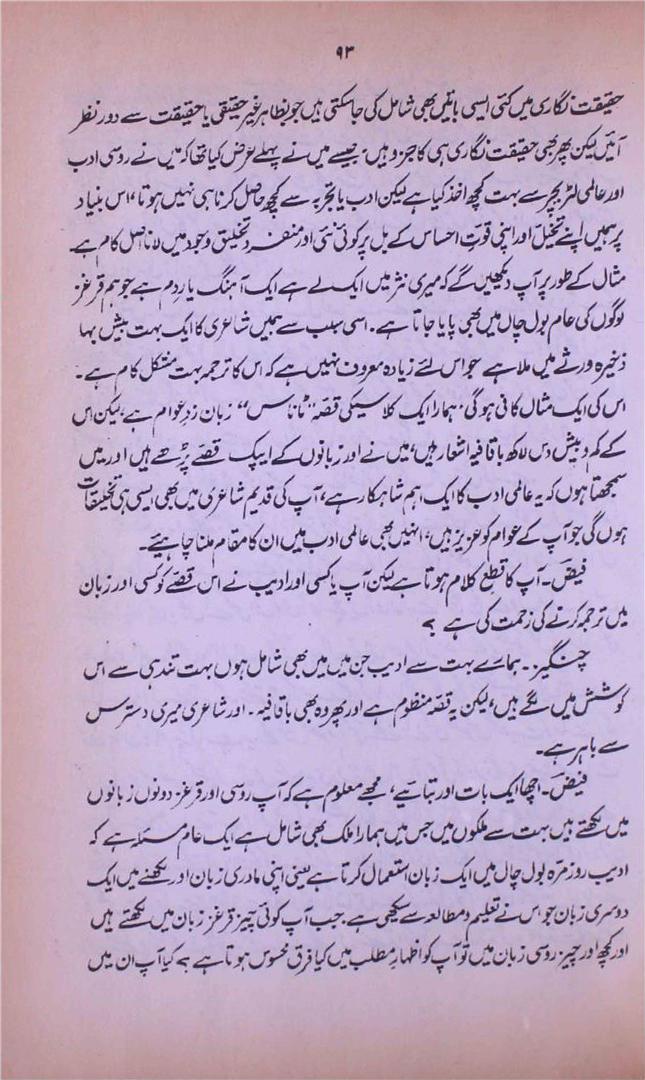 ۹۳
حقیقت نگاری میں کئی ایسی باتیں بھی شامل کی جاسکتی ہیں جو بظاہر غیر حقیقی یا حقیقت سے دور نظر
آئیں لیکن پھر بھی حقیقت نگاری ہی کا جزو ہیں، جیسے میں نے پہلے عرض کیا تھا کہ میں نے روسی ادب
اور عالمی لٹریچر سے بہت کچھ اخذ کیا ہے لیکن ادب یا تجربہ سے کچھ حاصل کرنا ہی نہیں ہوتا، اس بنیاد
پر ہمیں اپنے تخیل اور اپنی قوتِ احساس کے بل پر کوئی نئی اور منفرد تخلیق وجود میں لانا اصل کام ہے
مثال کے طور پر آپ دیکھیں گے کہ میری نثر میں ایک لے ہے ایک آہنگ یا ردم ہے جو ہم قرغز
لوگوں کی عام بول چال میں بھی پایا جاتا ہے۔ اسی سبب سے ہمیں شاعری کا ایک بہت بیش بہا
ذخیرہ ورثے میں ملا ہے جو اس لئے زیادہ معروف نہیں ہے کہ اس کا ترجمہ بہت مشکل کام ہے۔
اس کی ایک مثال کافی ہو گی، ہمارا ایک کلاسیکی قصّہ "ماناس" زبان زدِ عوام ہے، لیکن اس
کے کم و بیش دس لاکھ باقافیہ اشعار ہیں، میں نے اور زبانوں کے ایپک قصّے پڑھے ہیں اور میں
سمجھتا ہوں کہ یہ عالمی ادب کا ایک اہم شاہکار ہے، آپ کی قدیم شاعری میں بھی ایسی ہی تخلیقات
ہوں گی جو آپ کے عوام کو عزیز ہیں، انہیں بھی عالمی ادب میں ان کا مقام ملنا چاہیئے۔
فیض۔ آپ کا قطع کلام ہوتا ہے لیکن آپ یا کسی اور ادیب نے اس قصّے کو کسی اور زبان
میں ترجمہ کرنے کی زحمت کی ہے؟
چنگیز۔ ہمارے بہت سے ادیب جن میں میں بھی شامل ہوں بہت تندہی سے اس
کوشش میں لگے ہیں، لیکن یہ قصّہ منظوم ہے اور پھر وہ بھی باقافیہ۔ اور شاعری میری دسترس
سے باہر ہے۔
فیض۔ اچھا ایک بات اور بتائیے، مجھے معلوم ہے کہ آپ روسی اور قرغز دونوں زبانوں
میں لکھتے ہیں بہت سے ملکوں میں جس میں ہمارا ملک بھی شامل ہے ایک عام مسئلہ ہے کہ
ادیب روزمرّہ بول چال میں ایک زبان استعمال کرتا ہے یعنی اپنی مادری زبان اور لکھنے میں ایک
دوسری زبان جو اس نے تعلیم و مطالعہ سے سیکھی ہے۔ جب آپ کوئی چیز قرغز زبان میں لکھتے ہیں
اور کچھ اور چیز روسی زبان میں تو آپ کو اظہارِ مطلب میں کیا فرق محسوس ہوتا ہے؟ کیا آپ ان میں